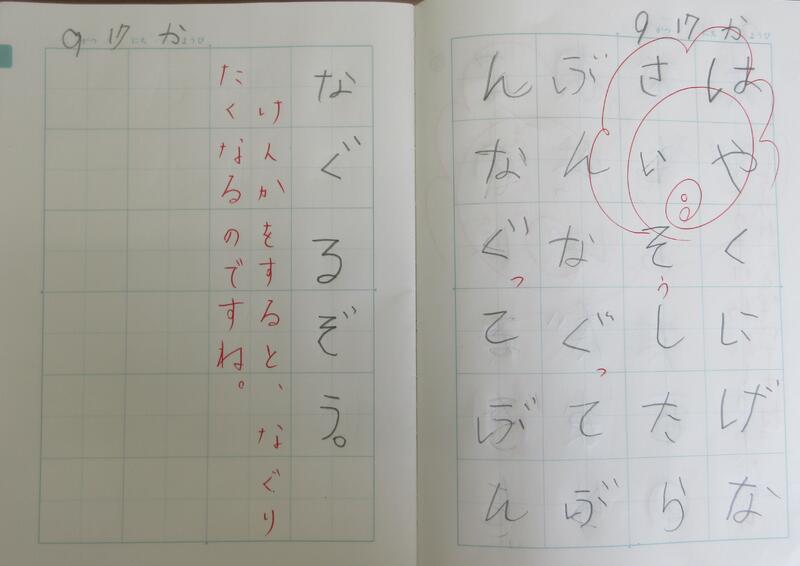 9がつ17にちかようび
はやくにげな
さいそうしたら
ぶんなぐってぶ
んなぐってぶん
9がつ17にちかようび
なぐるぞう。
けんかをすると、なぐり
たくなるのですね。